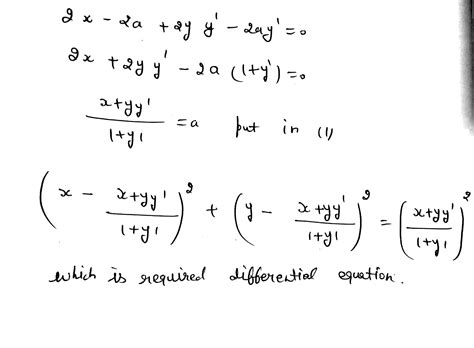 2x - 2a + 2y y' - 2ay' = 0
2x + 2y y' - 2a (1+y') = 0
x+yy' / 1+y' = a put in (1)
(x - x+yy' / 1+y')² + (y - x+yy' / 1+y')² = (x+yy' / 1+y')²
which is required differential equation.